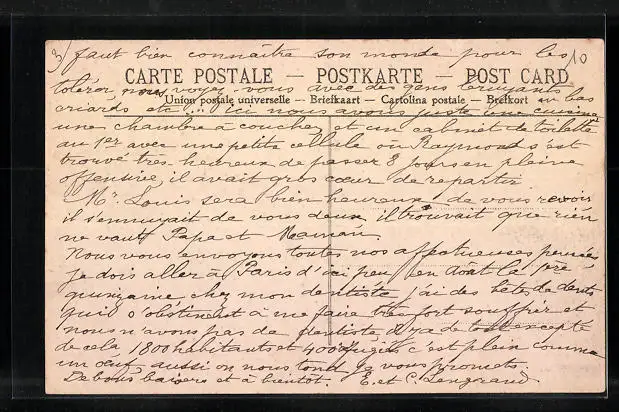 3/ faut bien connaître son monde pour les 10
CARTE POSTALE — POSTKARTE — POST CARD
tolérer, nous voyez-vous avec des gens bruyants
Union postale universelle — Briefkaart — Cartolina postale — Brefkort
criards etc... Ici nous avons juste une cuisine au bas
une chambre à coucher et un cabinet de toilette
au 1er avec une petite cellule où Raymond s'est
trouvé très heureux de passer 8 jours en pleine
offensive, il avait gros cœur de repartir.
Mr Louis sera bien heureux de vous revoir
il s'ennuyait de vous deux, il trouvait que rien
ne vaut Papa et Maman.
Nous vous envoyons toutes nos affectueuses pensées
Je dois aller à Paris d'ici peu, en août la 1ère
quinzaine chez mon dentiste, j'ai des bêtes de dents
qui s'obstinent à me faire très fort souffrir et
nous n'avons pas de dentiste il y a de tout excepté
de cela, 1800 habitants et 400 réfugiés c'est plein comme
un œuf, aussi on nous tond je vous promets.
De bons baisers et à bientôt. E. et C. Lengrand